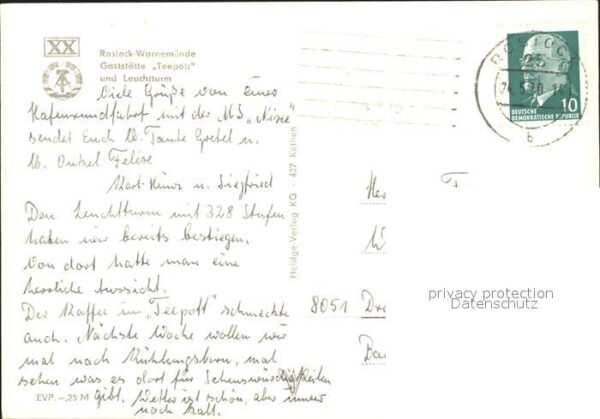 XX
Rostock-Warnemünde
Gaststätte „Teepott"
und Leuchtturm
Viele Grüße von einer
Hafenrundfahrt mit der MS „
sendet Euch lb. Tante Gretel u.
lb. Onkel
Karl-Heinz u. Siegfried
Den Leuchtturm mit 328 Stufen
haben wir bereits bestiegen.
Von dort hatte man eine
herrliche Aussicht.
Der Kaffee im „Teepott" schmeckte
auch. Nächste Woche wollen wir
mal nach Kühlungsborn, mal
sehen was es dort für Sehenswürdigkeiten
gibt. Wetter ist schön, aber immer
noch kalt.
EVP -,25 M
Holdge-Verlag KG - 437 Köthen
ROSTOCK
25
b
10
DEUTSCHE
DEMOKRATISCHE REPUBLIK
8051 Dre
privacy protection
Datenschutz